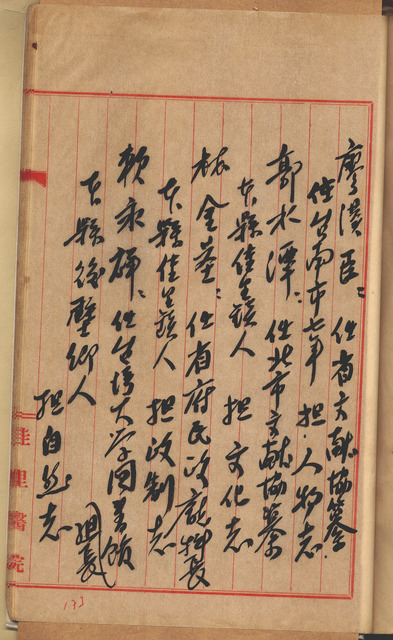 廖漢臣：任省文獻協纂
住台南市七年 担·人物志
郭水潭：任北市文獻協纂
本縣佳里鎮人 担文化志
林金莖：任省府民政廳科長
本縣佳里鎮人 担政制志
賴永祥：任台灣大学図書館
組長
本縣後壁鄉人
担自然志
佳里醫院